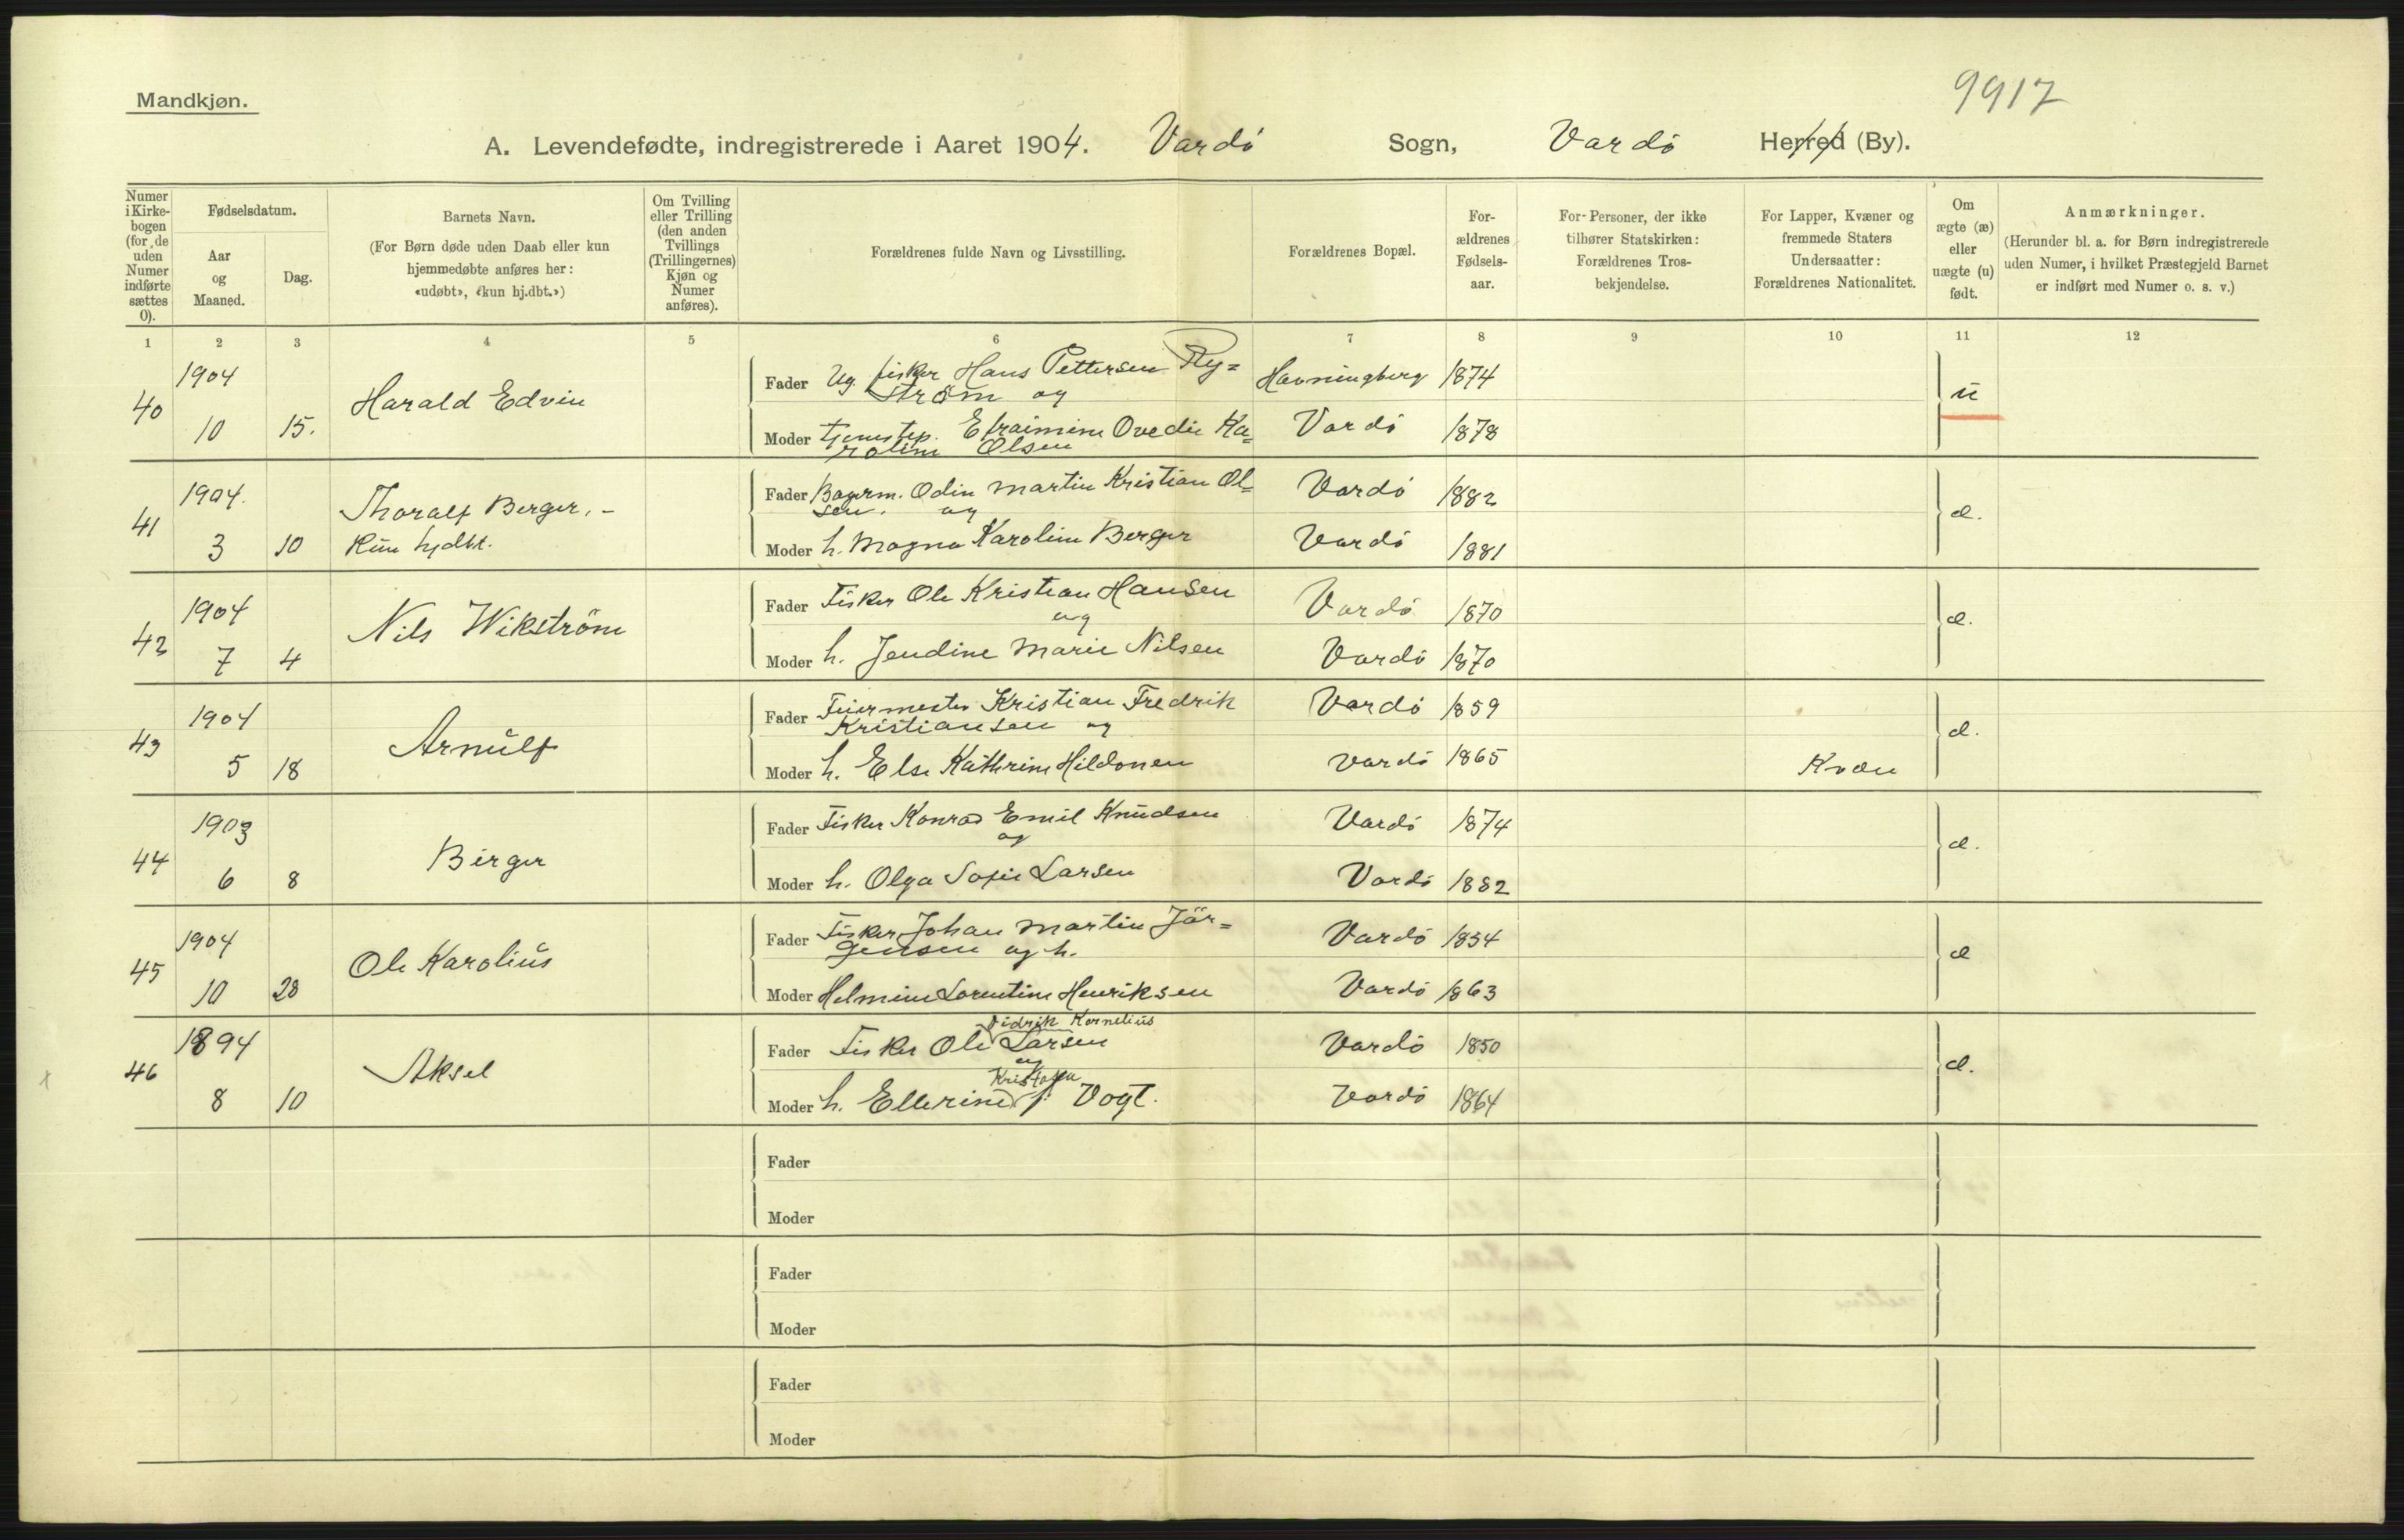 9917
Mandkjøn.
A. Levendefødte, indregistrerede i Aaret 1904. Vardö Sogn, Vardö Herred (By).
Numer i Kirke-bogen (for de uden Numer indførte sættes 0).
Fødselsdatum.
Aar og Maaned.
Dag.
Barnets Navn.
(For Børn døde uden Daab eller kun hjemmedøbte anføres her: «udøbt», «kun hj.dbt.»)
Om Tvilling eller Trilling (den anden Tvillings (Trillingernes) Kjøn og Numer anføres).
Forældrenes fulde Navn og Livsstilling.
Forældrenes Bopæl.
For-ældrenes Fødsels-aar.
For Personer, der ikke tilhører Statskirken: Forældrenes Tros-bekjendelse.
For Lapper, Kvæner og fremmede Staters Undersaatter: Forældrenes Nationalitet.
Om ægte (æ) eller uægte (u) født.
Anmærkninger.
(Herunder bl. a. for Børn indregistrerede uden Numer, i hvilket Præstegjeld Barnet er indført med Numer o. s. v.)
1 2 3 4 5 6 7 8 9 10 11 12
40 1904 10 15. Harald Edvin
Fader Ug. fisker Hans Pettersen Ny=
ström og Havningberg 1874 u
Moder tjenestep. Efraimine Ovedie Ka=
roline Olsen Vardö 1878
41 1904. 3 10 Thoralf Berger. -
Kun hjdbt.
Fader Bogerm. Odin Martin Kristian Ol=
sen. og Vardö 1882 æ.
Moder h. Magna Karoline Berger Vardö 1881
42 1904 7 4 Nils Wikström
Fader Fisker Ole Kristian Hansen
og Vardö 1870 æ.
Moder h. Jendine Marie Nilsen Vardö 1870
43 1904 5 18 Arnulf
Fader Feiermester Kristian Fredrik
Kristiansen og Vardö 1859 æ.
Moder h. Else Kathrine Hildonen Vardö 1865 Kvæn
44 1903 6 8 Birger
Fader Fisker Konrad Emil Knudsen
og Vardö 1874 æ.
Moder h. Olga Sofie Larsen Vardö 1882
45 1904 10 28 Ole Karolius
Fader Fisker Johan Martin Jör=
gensen og h. Vardö 1854 æ
Moder Helmine Lorentine Henriksen Vardö 1863
46 1894 8 10 Aksel
Didrik Kornelius
Fader Fisker Ole Larsen
og Vardö 1850 æ.
Kristofa
Moder h. Ellerine Vogt. Vardö 1864
Fader
Moder
Fader
Moder
Fader
Moder